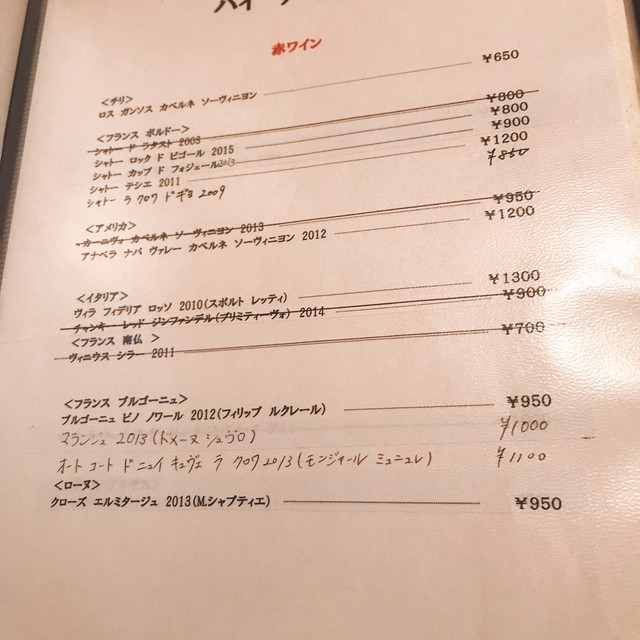 赤ワイン
<チリ>
ロス ガンソス カベルネ ソーヴィニヨン ¥650
<フランス ボルドー>
シャトー ド ラタスト 2003 ¥800
シャトー ロック ド ビゴール 2015 ¥800
シャトー カップ ド フォジェール2013 ¥900
シャトー テシエ 2011 ¥1200
シャトー ラ クロワ ドギョ 2009 ¥850
<アメリカ>
カーニヴォ カベルネ ソーヴィニヨン 2013 ¥950
アナベラ ナパ ヴァレー カベルネ ソーヴィニヨン 2012 ¥1200
<イタリア>
ヴィラ フィデリア ロッソ 2010(スポルト レッティ) ¥1300
チャンキー レッド ジンファンデル(プリミティーヴォ) 2014 ¥900
<フランス 南仏 >
ヴィニウス シラー 2011 ¥700
<フランス ブルゴーニュ>
ブルゴーニュ ピノ ノワール 2012(フィリップ ルクレール) ¥950
マランジュ 2013(ドメーヌ シュヴロ) ¥1000
オート コート ド ニュイ キュヴェ ラ クロワ 2013(モンジャール ミュニュレ) ¥1100
<ローヌ>
クローズ エルミタージュ 2013(M.シャプティエ) ¥950